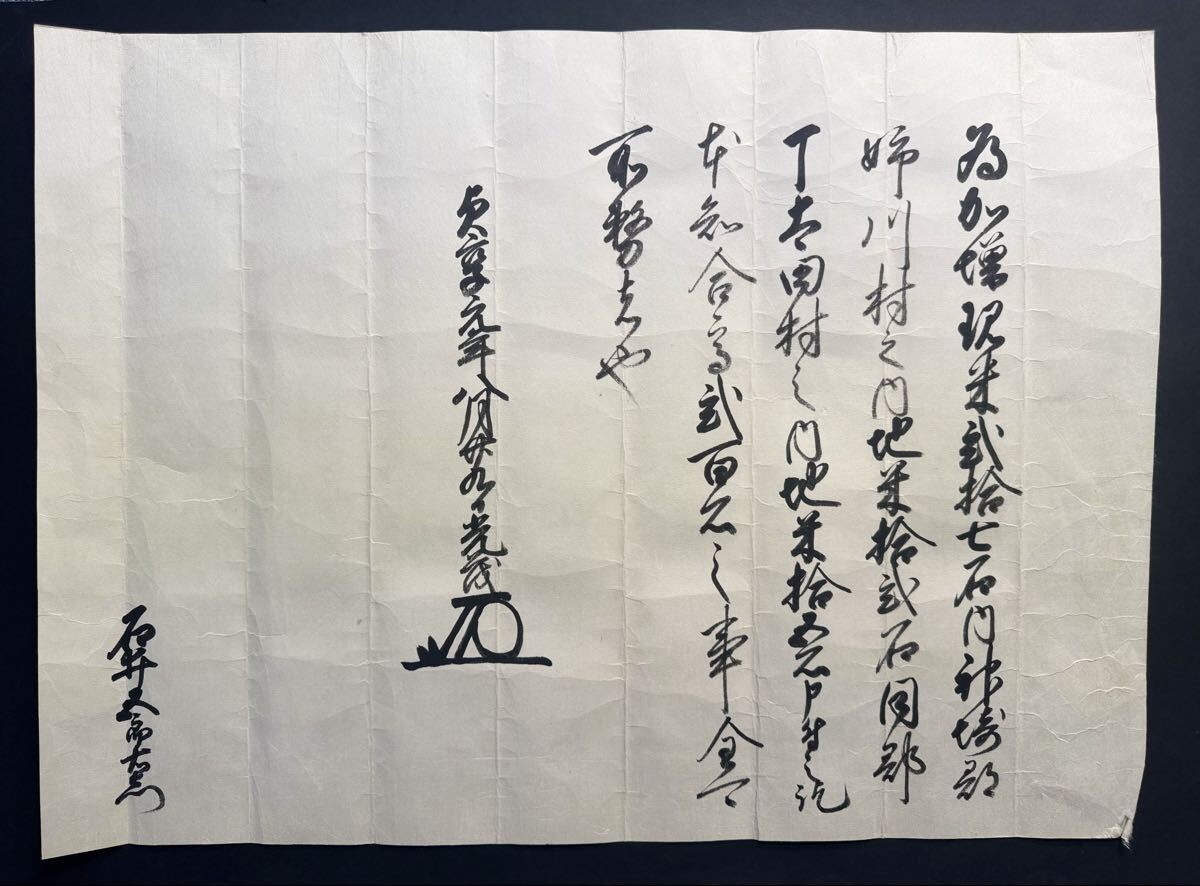 為加増現米弐拾七石内神埼郡
姉川村之内地米拾弐石同郡
下太田村之内地米拾五石申付之訖
本知合高弐百石之事全可
所務者也
貞享元年八月廿九日光茂
石井又右衛門